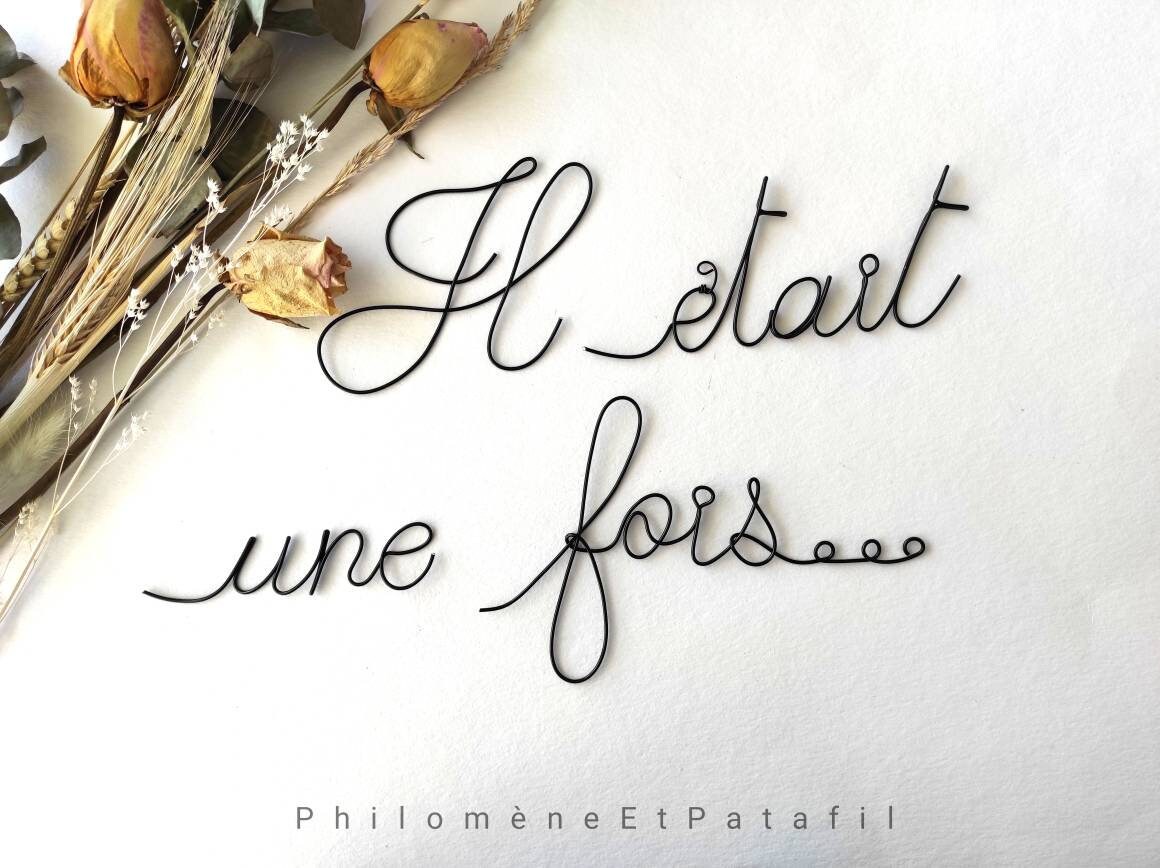 Il était
une fois...
PhilomèneEtPatafil